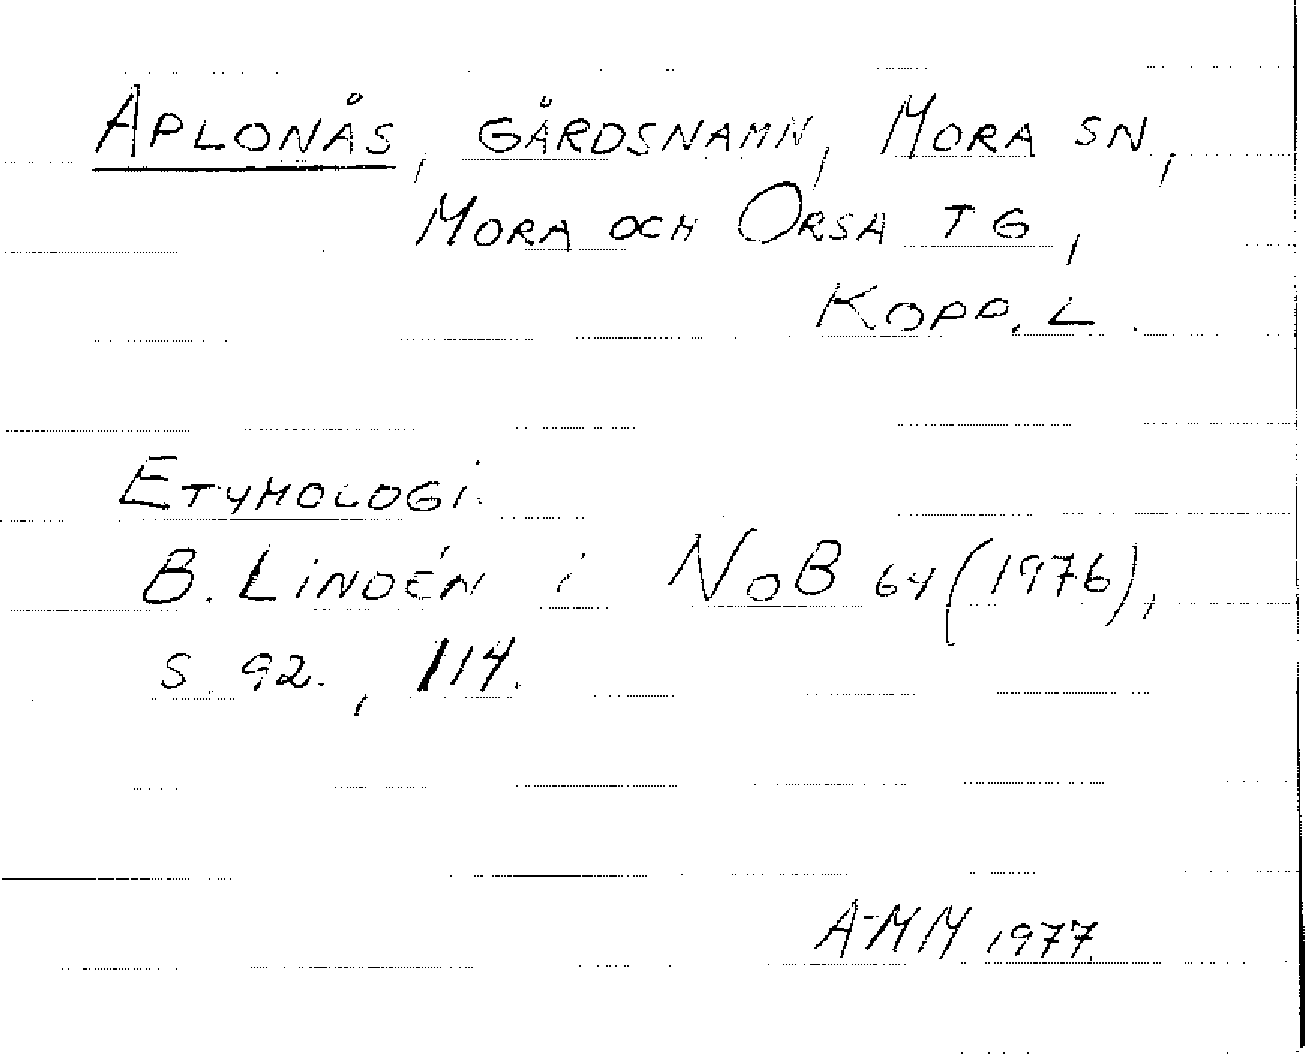 APLONÅS, GÅRDSNAMN, MORA SN,
MORA OCH ORSA TG,
KOPP. L.
ETYMOLOGI.
B. LINDÉN i NoB 64 (1976),
S. 92., 114.
A-MM 1977.